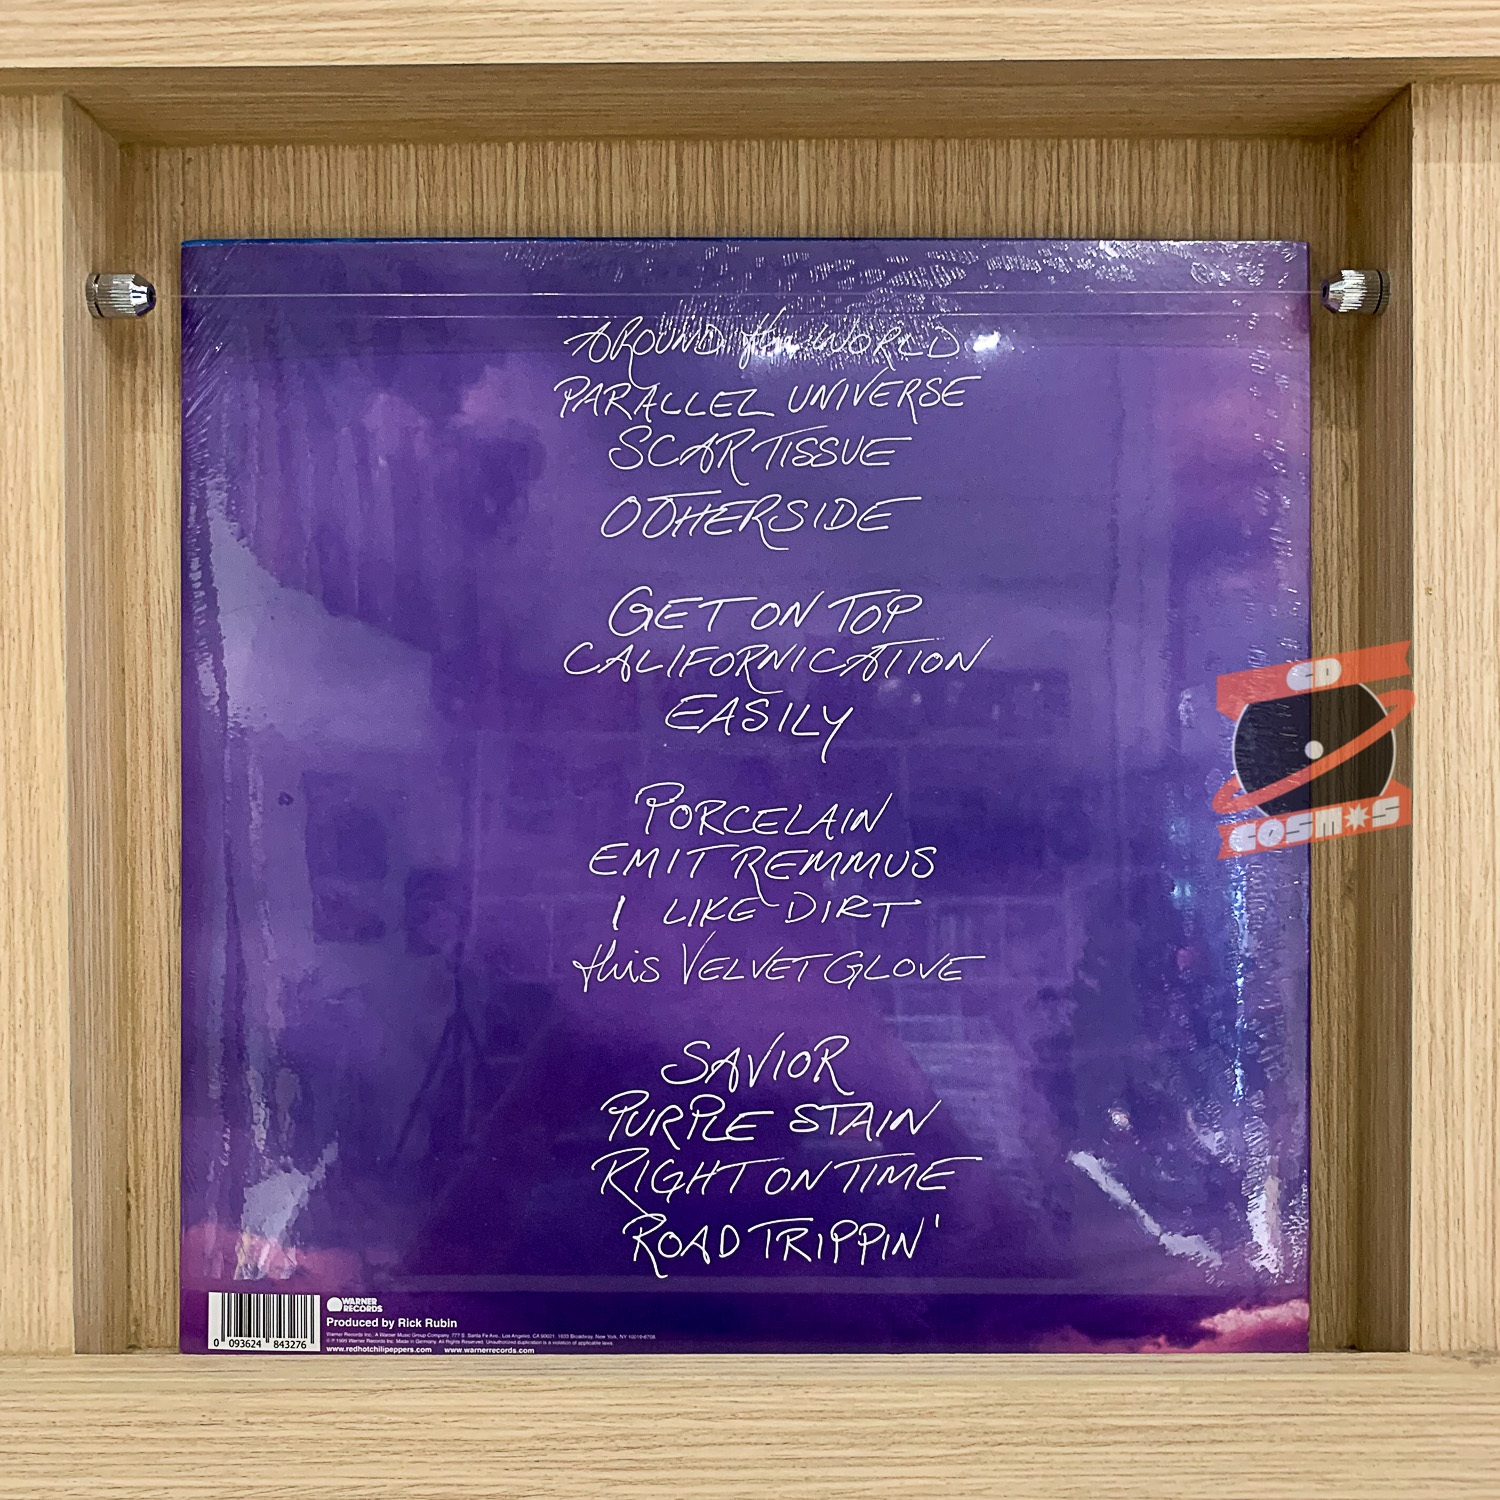 AROUND the WORLD
PARALLEL UNIVERSE
SCAR TISSUE
OTHERSIDE
GET ON TOP
CALIFORNICATION
EASILY
PORCELAIN
EMIT REMMUS
I LIKE DIRT
this VELVET GLOVE
SAVIOR
PURPLE STAIN
RIGHT ON TIME
ROAD TRIPPIN'
CD
COSMOS
0 093624 843276
WARNER
RECORDS
Produced by Rick Rubin
Warner Records Inc., A Warner Music Group Company. 777 S. Santa Fe Ave., Los Angeles, CA 90021. 1633 Broadway, New York, NY 10019-6708.
℗ 1999 Warner Records Inc. Made in Germany. All Rights Reserved. Unauthorized duplication is a violation of applicable laws.
www.redhotchilipeppers.com www.warnerrecords.com